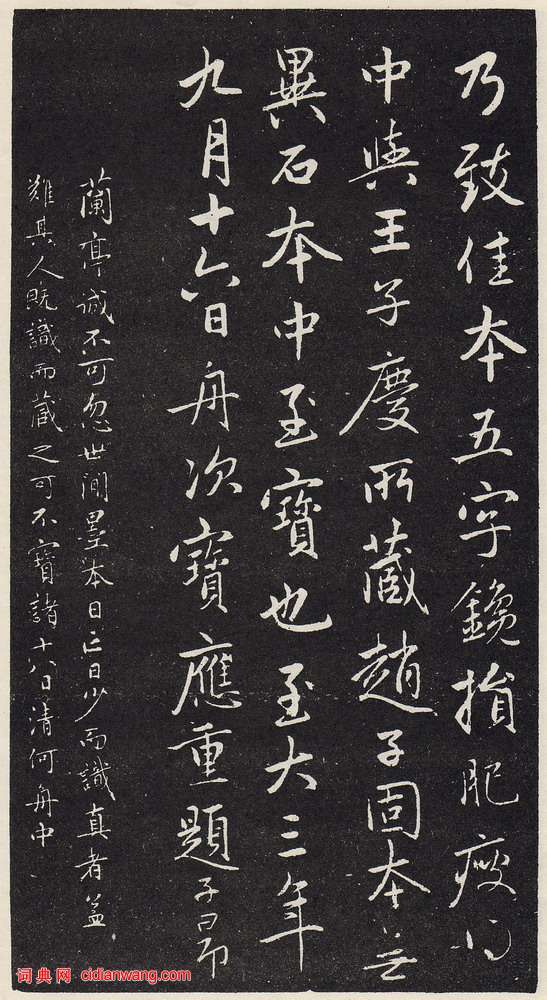 乃致佳本五字鑱損肥瘦得
中與王子慶所藏趙子固本無
異石本中至寶也至大三年
九月十六日舟次寶應重題子昂
蘭亭誠不可忽世間墨本日亡日少而識真者蓋
難其人既識而藏之可不寶諸十八日清河舟中
词典网 cidianwang.com